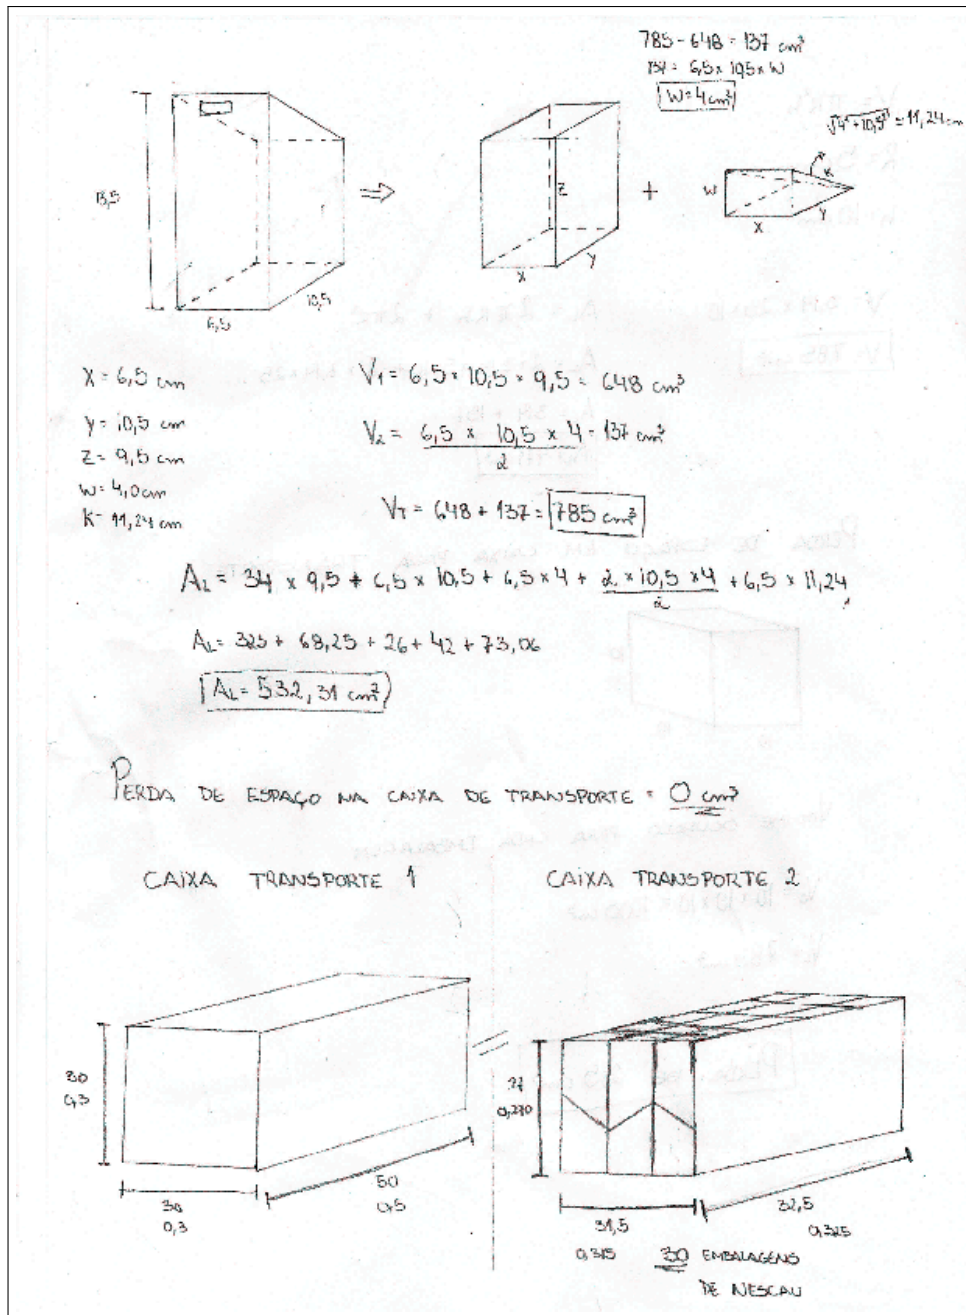 785 - 648 = 137 cm³
137 = 6,5 x 10,5 x W
W = 4 cm²
√4² + 10,5² = 11,24 cm
13,5
6,5
10,5
⇒
Z
X
y
+
W
K
X
Y
X = 6,5 cm
y = 10,5 cm
Z = 9,5 cm
W = 4,0 cm
K = 11,24 cm
V1 = 6,5 x 10,5 x 9,5 = 648 cm³
V2 = 6,5 x 10,5 x 4 = 137 cm³
2
VT = 648 + 137 = 785 cm³
AL = 34 x 9,5 + 6,5 x 10,5 + 6,5 x 4 + 2 x 10,5 x 4 + 6,5 x 11,24
2
AL = 323 + 68,25 + 26 + 42 + 73,06
AL = 532,31 cm²
PERDA DE ESPAÇO NA CAIXA DE TRANSPORTE = 0 cm³
CAIXA TRANSPORTE 1
CAIXA TRANSPORTE 2
30
0,3
30
0,3
50
0,5
27
0,270
31,5
0,315
32,5
0,325
30 EMBALAGENS
DE NESCAU